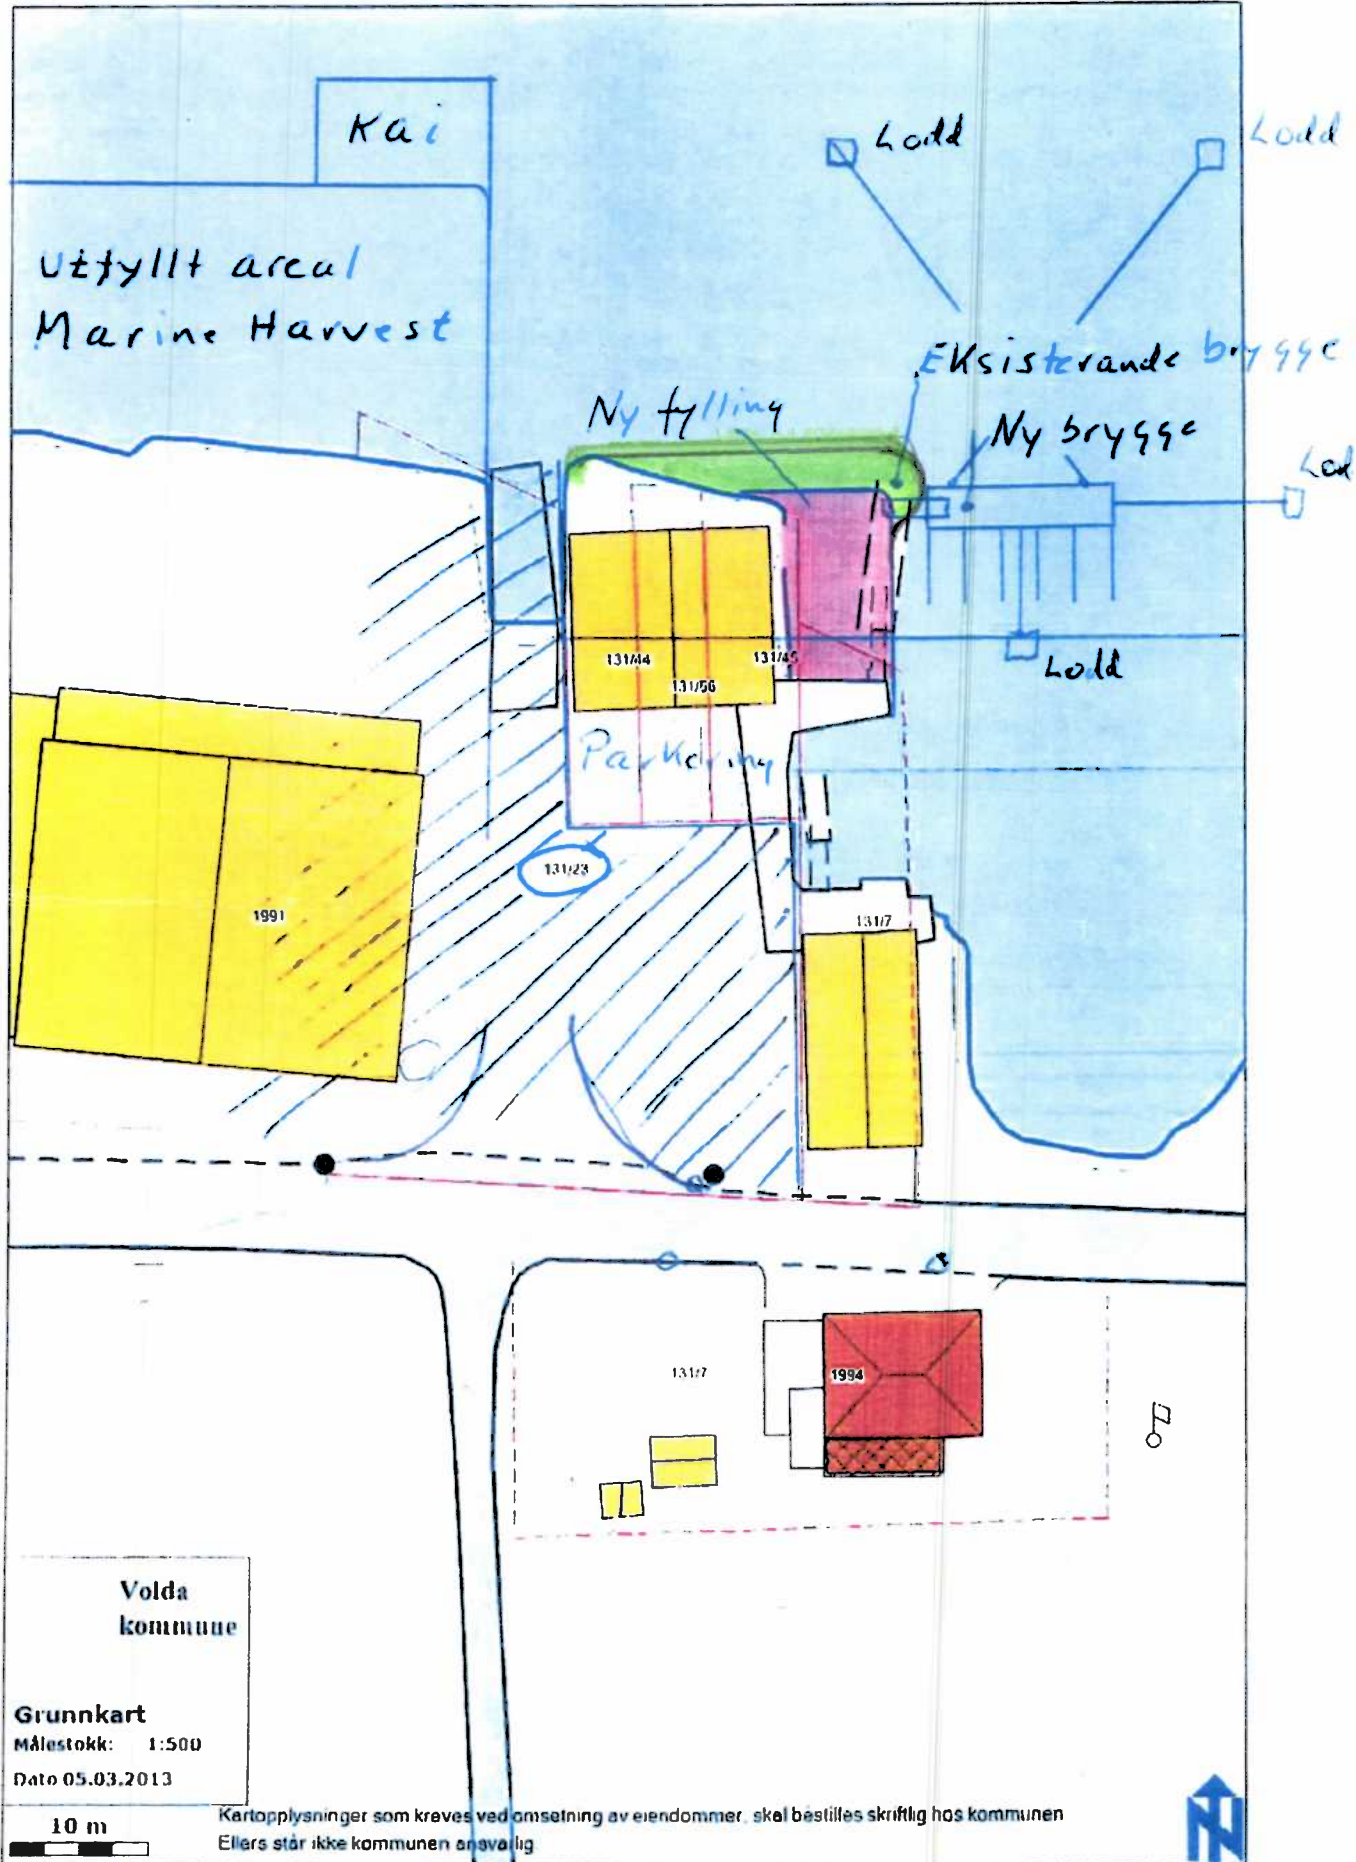 Kai
Lodd
Lodd
Utfyllt areal
Marine Harvest
Eksisterande brygge
Ny fylling
Ny brygge
Lod
131/44
131/45
131/56
Lodd
Parkering
131/23
1991
131/7
131/7
1994
Volda
kommune
Grunnkart
Målestokk: 1:500
Dato 05.03.2013
10 m
Kartopplysninger som kreves ved omsetning av eiendommer, skal bestilles skriftlig hos kommunen
Ellers står ikke kommunen ansvarlig
N